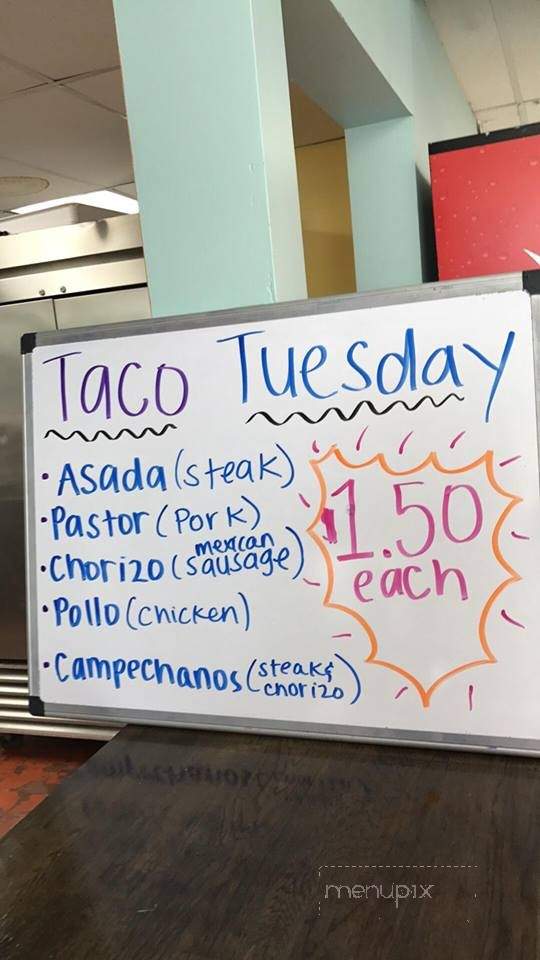 Taco Tuesday
• Asada (steak)
• Pastor (Pork)
• Chorizo (mexican sausage)
• Pollo (chicken)
• Campechanos (steak & chorizo)
1.50
each
menupix